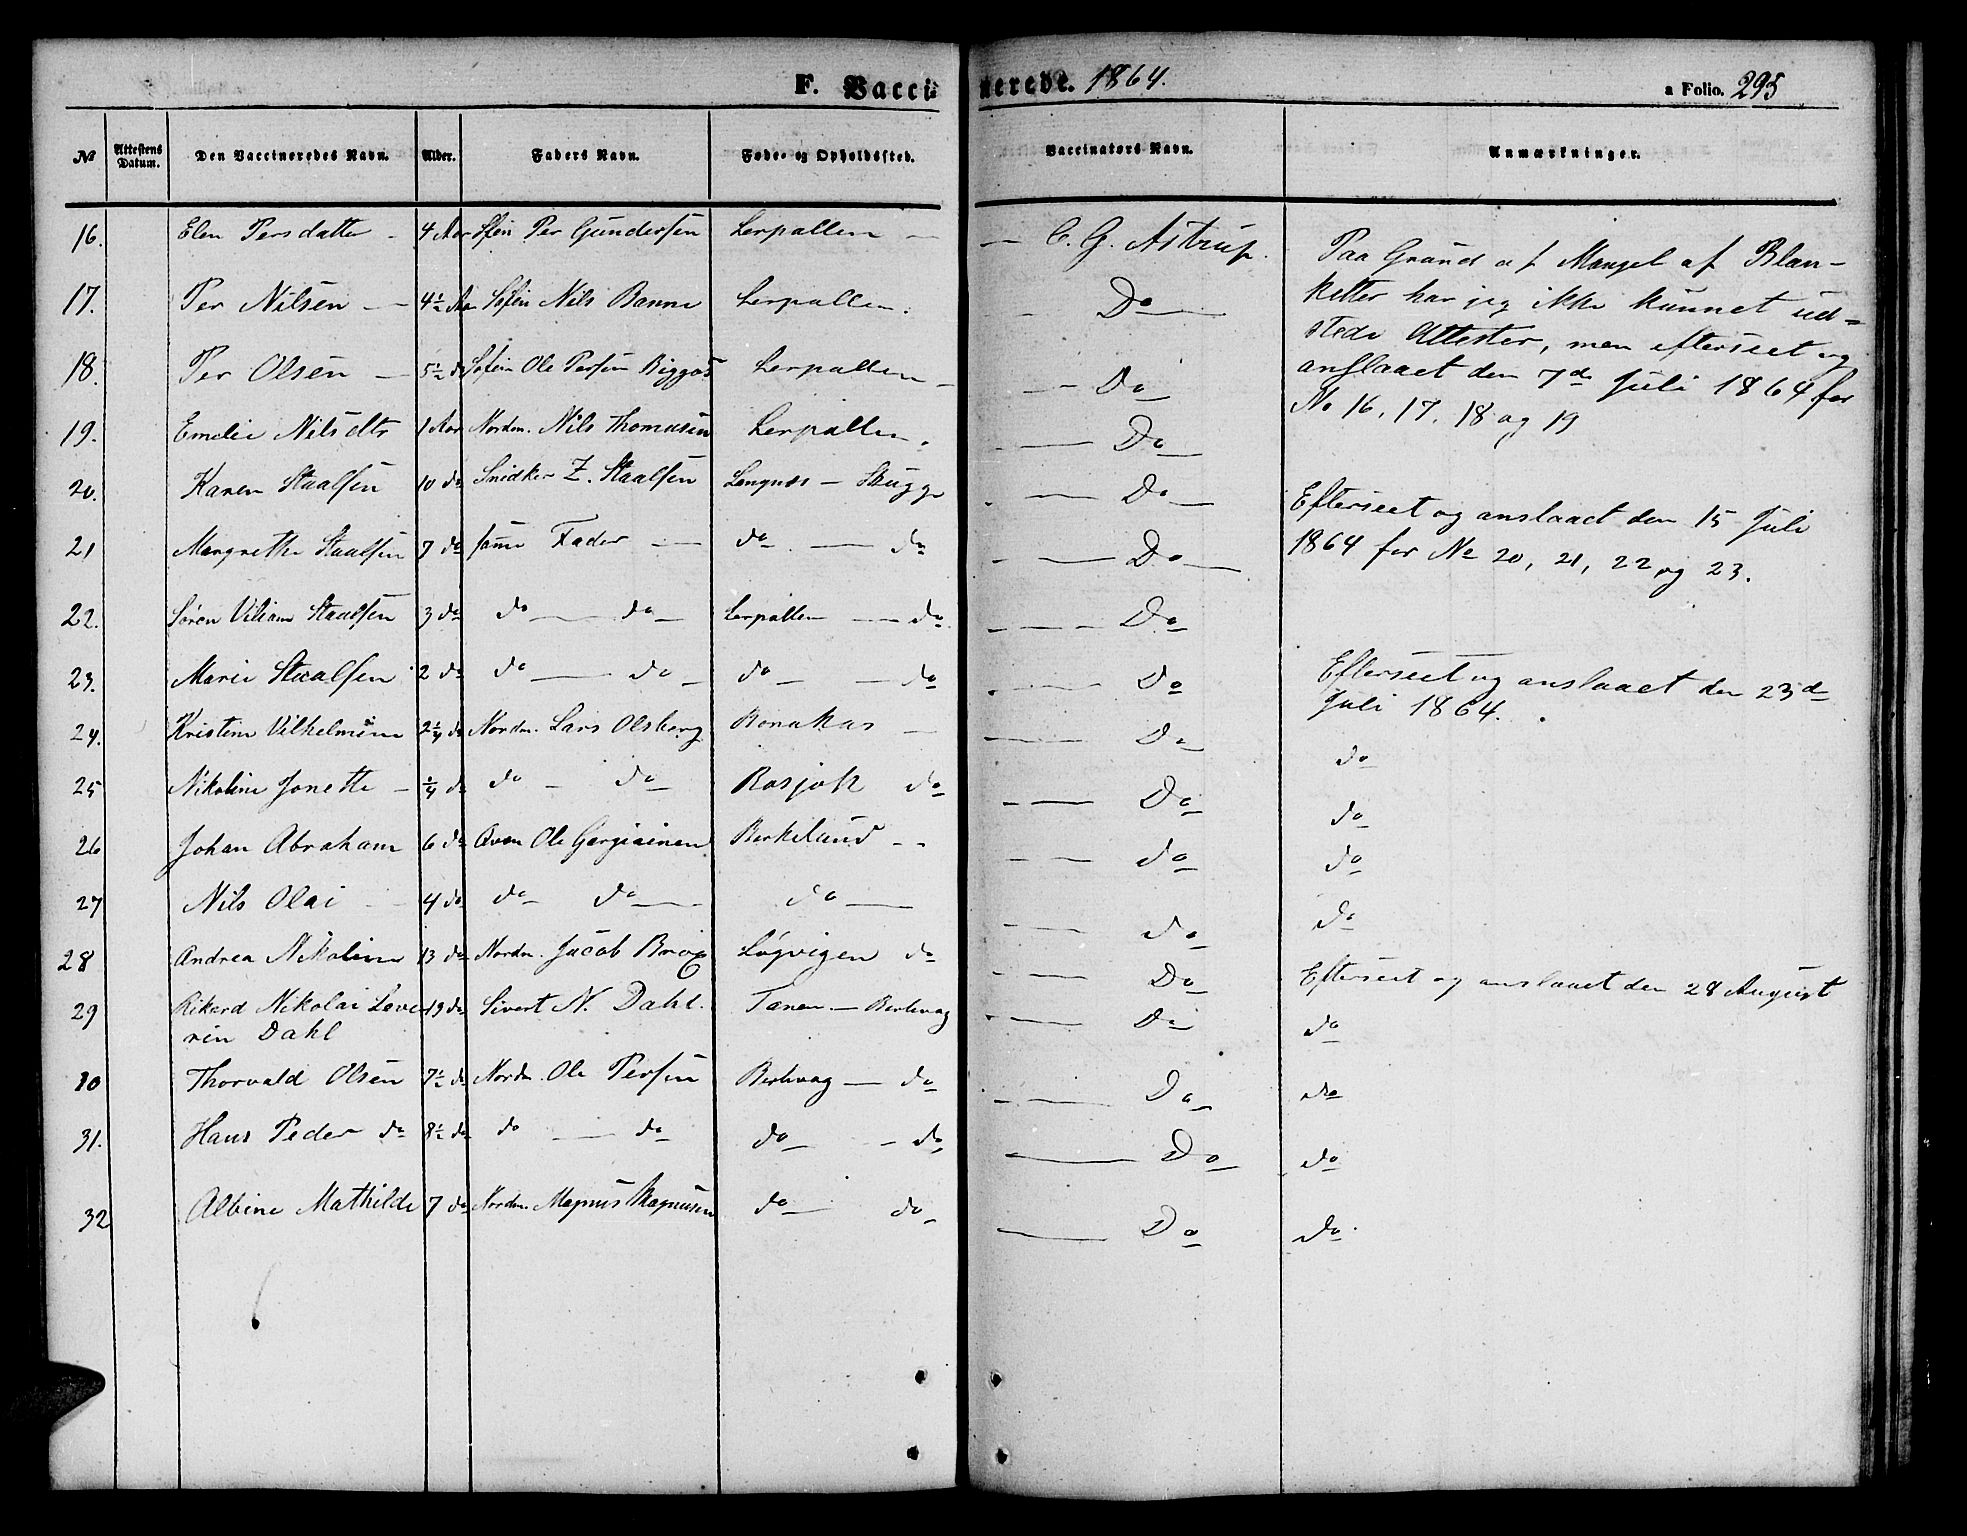 F. Vaccinerede. 1864. a Folio. 295
№ Attestens Datum. Den Vaccineredes Navn. Alder. Faders Navn. Føde- og Opholdssted. Vaccinators Navn. Anmærkninger.
16. Elen Persdatter - 4 Aar Sfin Per Gundersen Lerpollen - C. G. Astrup. Paa Grund af Mangel af Blan-
17. Per Nilsen - 4½ Aar Søfin Nils Banne Lerpollen. Do ketter har jeg ikke kunnet ud-
stede Attester, men efterseet og
18. Per Olsen - 5½ do Søfin Ole Persen Biggas Lerpollen - Do anslaaet den 7de Juli 1864 for
No 16, 17, 18 og 19
19. Emelie Nilsdtr 1 Aar Nordm. Nils Thomasen Lerpollen. Do
20. Karen Staalsen 10 do Snidker Z. Staalsen Langnæs - Stugge Do Efterseet og anslaaet den 15 Juli
21 Margrethe Staalsen 7 do samme Fader - do - do Do 1864 for No 20, 21, 22 og 23.
22. Søren Viliam Staalsen 3 do do - do - Lerpollen - do Do
23. Marie Staalsen 2 do do - do - do - do Do Efterseet og anslaaet den 23de
Juli 1864.
24. Kristine Vilhelmine 2¼ do Nordm. Lars Olsberg Bonakas - Do do
25 Nikoline Jonette - ¼ do do - do Rasjok do Do do
26 Johan Abraham 6 do Qvæn Ole Gargiainen Berkelund - - do do
27 Nils Olai - 4 do do do - do - do do
28 Andrea Nikoline 13 do Nordm. Jacob Brox Løgvigen do Do Efterseet og anslaaet den 28 August
29 Rikard Nikolai Seve- 13 do Sivert N. Dahl. Tanen - Berlevag Do do
rin Dahl
30 Thorvald Olsen 7½ do Nordm. Ole Persen Berlevag - do Do do
31. Hans Peder do 8½ do do - do do - do Do do
32 Albine Mathilde 7 do Nordm. Magnus Magnusen do - do Do do